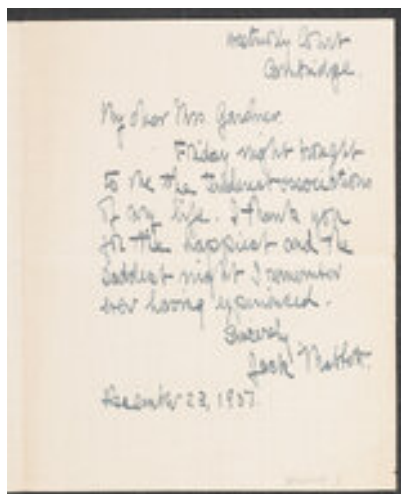 Westerly Court
Cambridge.
My dear Mrs Gardner.
Friday night brought
to me the tenderest associations
of my life. I thank you
for the happiest and the
saddest night I remember
ever having experienced.
Sincerely
Jack
December 23, 1907.